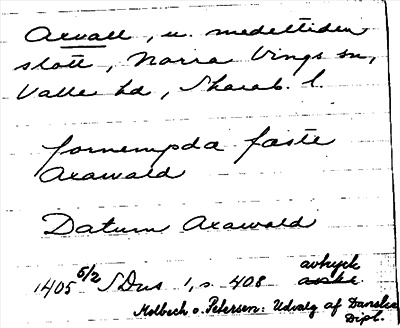 Axvall, u. medeltiden
slott, Norra Vings sn,
Valle hd, Skarab. l.
fornempda fäste
Axawald
Datum Axawald
1405 6/2 SDns 1, s. 408 avtryck
Molbech o. Petersen: Udvalg af Danske
Dipl.